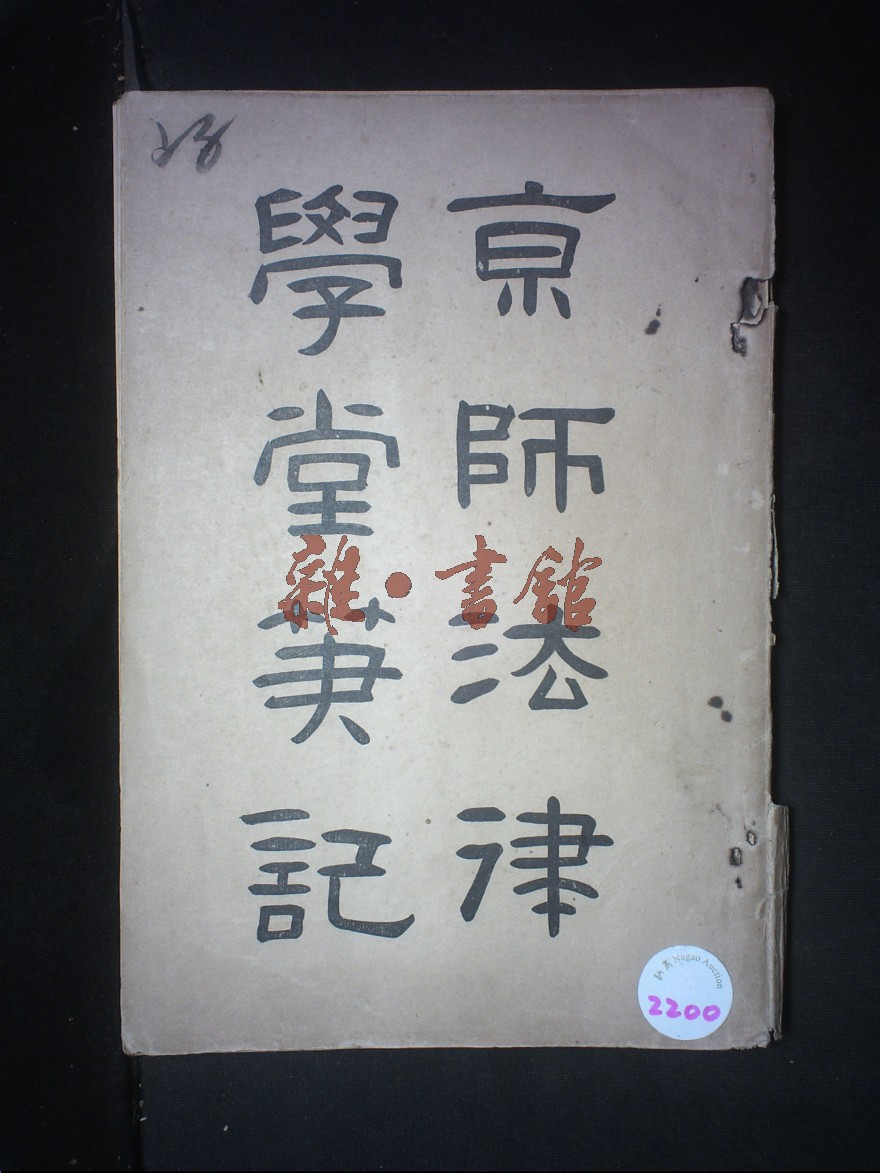 京師法律
學堂筆記
雜●書館
Nagao Auction
2200